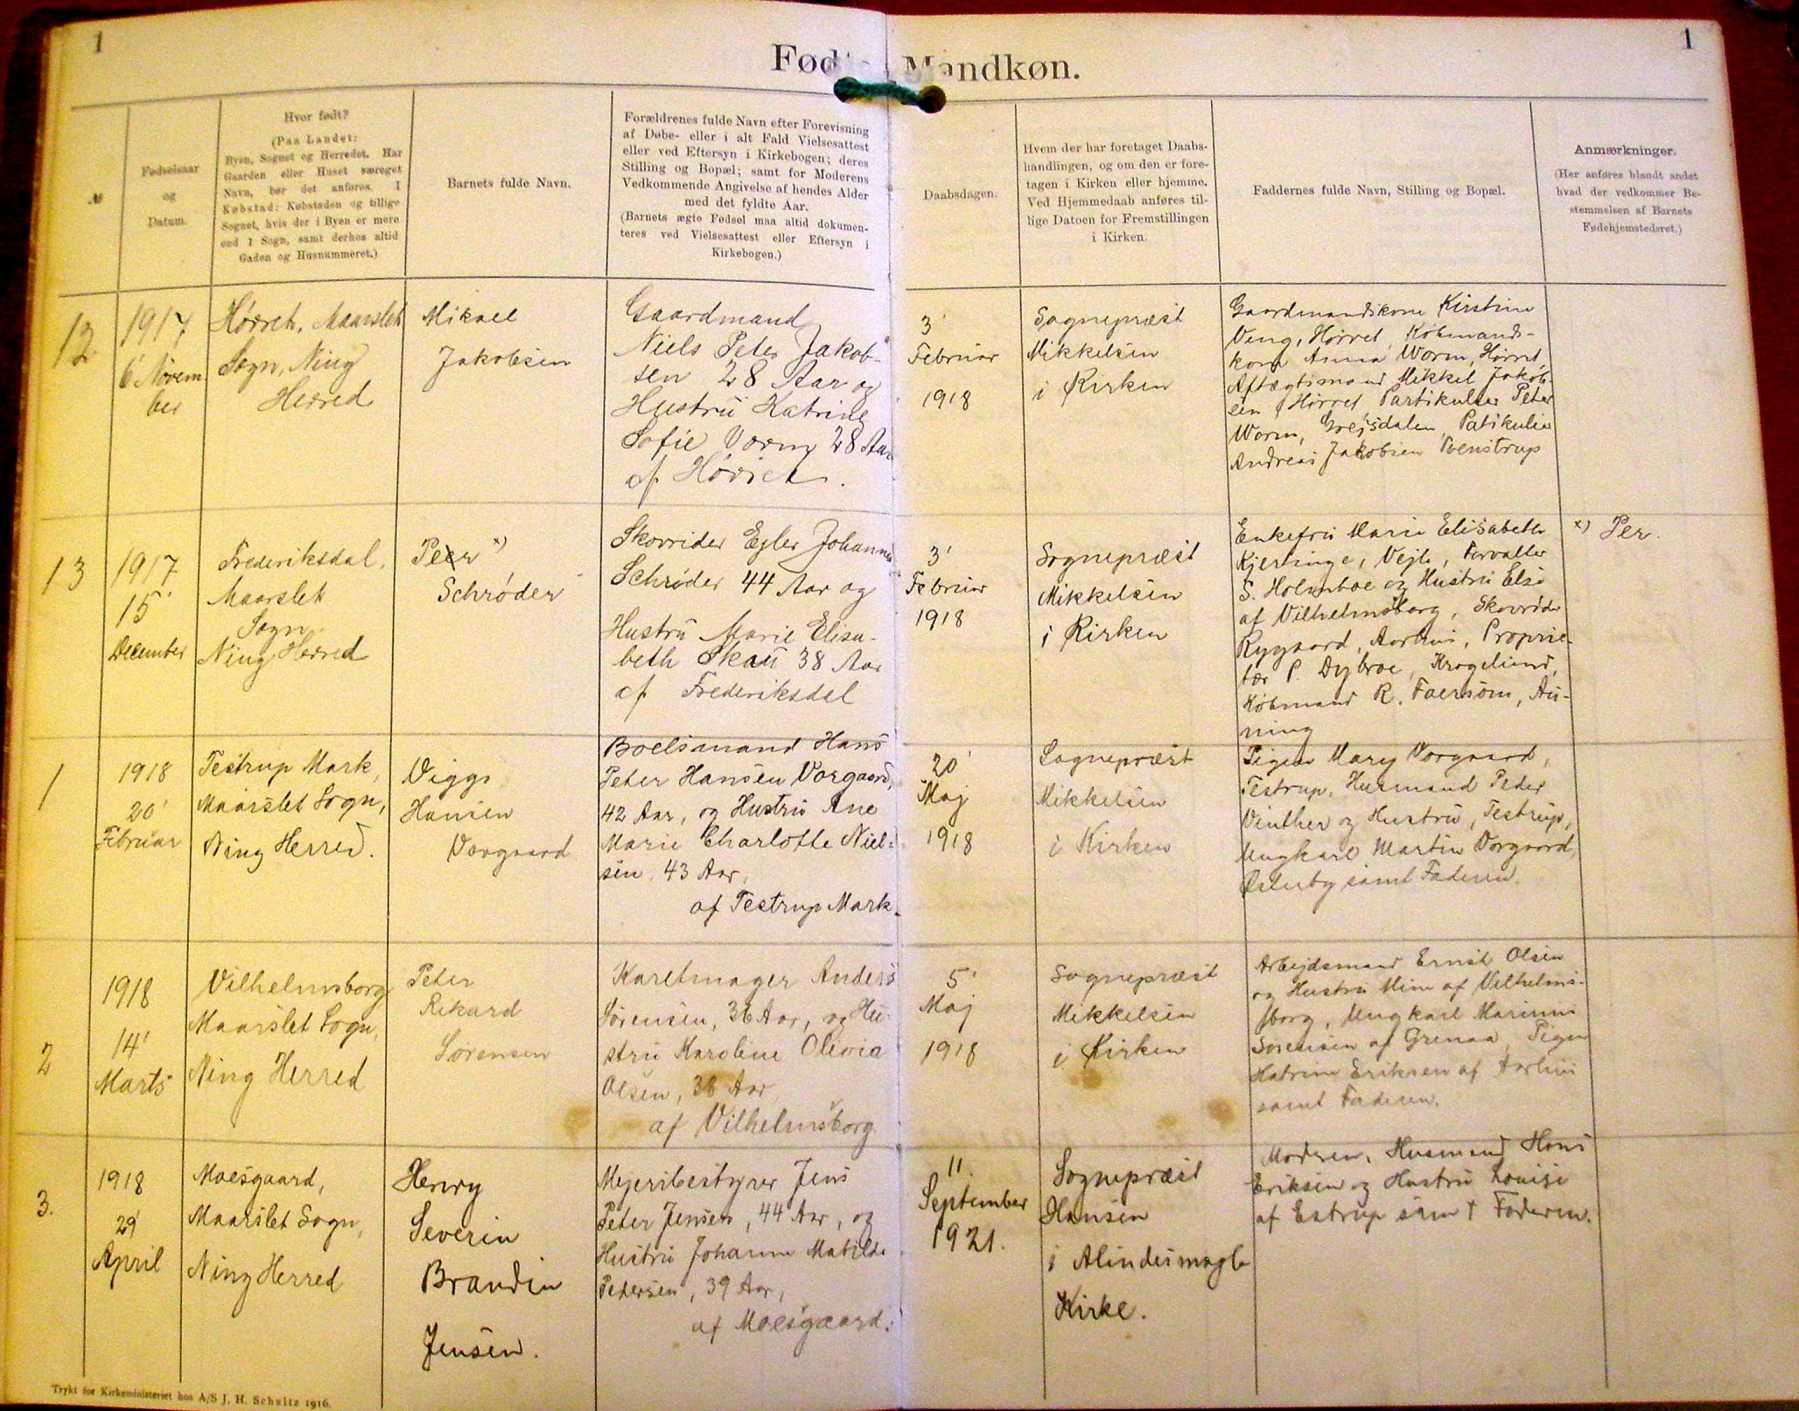 1
1
Fødte Mandkøn.
№
Fødselsaar
og
Datum.
Hvor født?
(Paa Landet:
Byen, Sognet og Herredet. Har
Gaarden eller Huset særeget
Navn, bør det anføres. I
Købstad: Købstaden og tillige
Sognet, hvis der i Byen er mere
end 1 Sogn, samt derhos altid
Gaden og Husnummeret.)
Barnets fulde Navn.
Forældrenes fulde Navn efter Forevisning
af Døbe- eller i alt Fald Vielsesattest
eller ved Eftersyn i Kirkebogen; deres
Stilling og Bopæl; samt for Moderens
Vedkommende Angivelse af hendes Alder
med det fyldte Aar.
(Barnets ægte Fødsel maa altid dokumen-
teres ved Vielsesattest eller Eftersyn i
Kirkebogen.)
Daabsdagen.
Hvem der har foretaget Daabs-
handlingen, og om den er fore-
tagen i Kirken eller hjemme.
Ved Hjemmedaab anføres til-
lige Datoen for Fremstillingen
i Kirken.
Faddernes fulde Navn, Stilling og Bopæl.
Anmærkninger.
(Her anføres blandt andet
hvad der vedkommer Be-
stemmelsen af Barnets
Fødehjemstedsret.)
12
1917
6' Novem
ber
Hørret, Maarslet
Sogn, Ning
Herred
Mikael
Jakobsen
Gaardmand
Niels Peter Jakob-
sen 28 Aar og
Hustru Katrine
Sofie Vorm 28 Aar
af Hørret.
3'
Februar
1918
Sognepræst
Mikkelsen
i Kirken
Gaardmandskone Kirstine
Veng, Hørret, Købmands-
kone Anna Worm, Hørret,
Aftægtsmand Mikkel Jakob-
sen Hørret Partikulier Peter
Worm, Grejsdalen, Patikulier
Andreas Jakobsen Tvenstrup
13
1917
15'
December
Frederiksdal,
Maarslet
Sogn
Ning Herred
Peer x)
Schrøder
Skovrider Ejler Johannes
Schrøder 44 Aar og
Hustru Marie Elisa-
beth Skau 38 Aar
af Frederiksdal
3'
Februar
1918
Sognepræst
Mikkelsen
i Kirken
Enkefru Marie Elisabeth
Kjerbinge, Vejle, Forvalter
S. Holmboe og Hustru Else
af Vilhelmsborg, Skovrider
Rygaard, Aarhus, Proprie-
tær P. Dybroe, Kragelund,
Købmand R. Faersøm, Au-
ning
x) Per.
1
1918
20'
Februar
Testrup Mark,
Maarslet Sogn,
Ning Herred.
Viggo
Hansen
Vorgaard
Boelsmand Hans
Peter Hansen Vorgaard,
42 Aar, og Hustru Ane
Marie Charlotte Niel-
sen, 43 Aar,
af Testrup Mark.
20'
Maj
1918
Sognepræst
Mikkelsen
i Kirken
Pigen Mary Vorgaard,
Testrup, Husmand Peder
Vinther og Hustru, Testrup,
Ungkarl Martin Vorgaard
Østerby samt Faderen.
2
1918
14'
Marts
Vilhelmsborg
Maarslet Sogn,
Ning Herred
Peter
Rikard
Sørensen
Karetmager Anders
Sørensen, 36 Aar, og Hu-
stru Karoline Olivia
Olsen, 36 Aar
af Vilhelmsborg
5'
Maj
1918
Sognepræst
Mikkelsen
i Kirken
Arbejdsmand Ernst Olsen
og Hustru Mine af Vilhelms-
borg, Ungkarl Marinus
Sørensen af Grenaa, Pigen
Katrine Eriksen af Aarhus
samt Faderen.
3.
1918
29'
April
Moesgaard,
Maarslet Sogn,
Ning Herred
Henry
Severin
Brandin
Jensen.
Mejeribestyrer Jens
Peter Jensen, 44 Aar, og
Hustru Johanne Matilde
Pedersen, 39 Aar,
af Moesgaard.
11.
September
1921.
Sognepræst
Hansen
i Alindesmagle
Kirke.
Moderen, Husmand Hans
Eriksen og Hustru Louise
af Estrup samt Faderen.
Trykt for Kirkeministeriet hos A/S J. H. Schultz 1916.